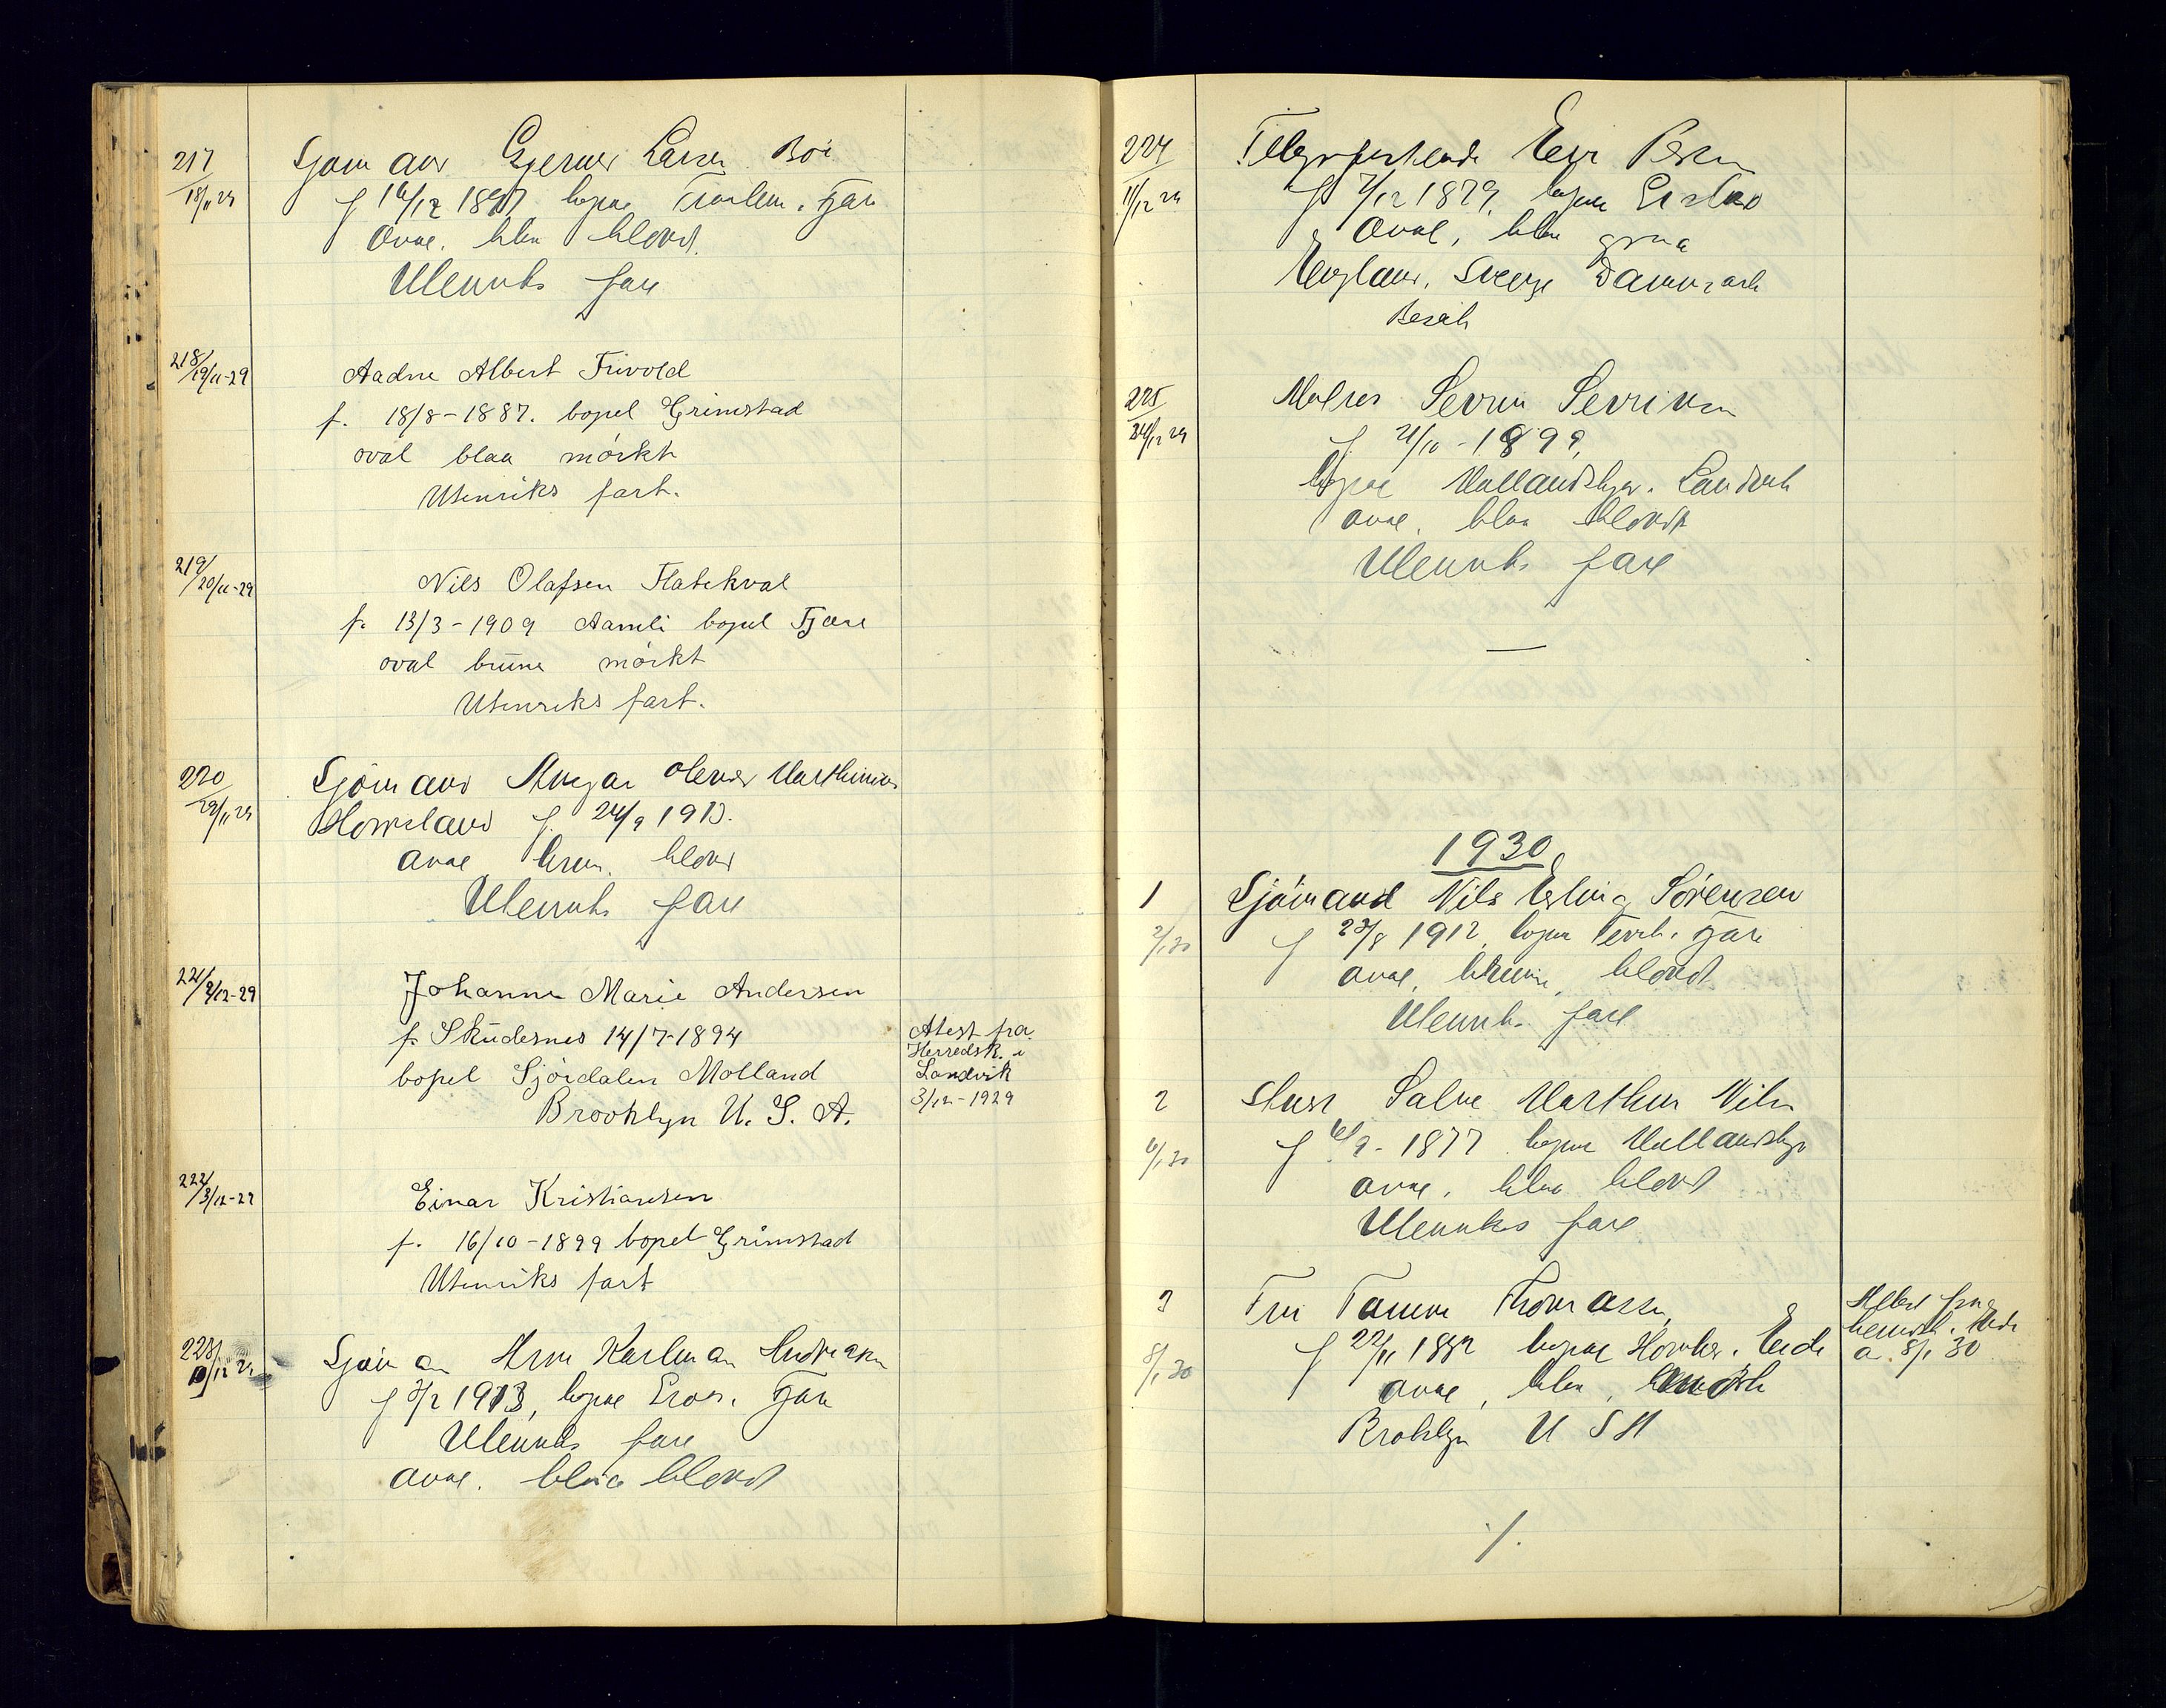 217
18/11 29
Sjømand Gjerner Larsen Bói
f 16/12 1897 bopæl Fjære
Oval. blaa blond.
Utenriks fart
218/
19/11-29
Aadne Albert Frivold
f. 18/8-1887. bopel Grimstad
oval blaa mörkt
Utenriks fart.
219/
20/11-29
Nils Olafsen Flatekval
f. 13/3-1909 Aamli bopel Fjære
oval brune mörkt
Utenriks fart.
220
29/11 29
Sjömand Ansgar Marthinius
f. 24/9 1913.
oval brun. blond
Utenriks fart
221/
2/12-29
Johanne Marie Andersen
f. Skudesnes 14/7-1894
bopel Sjördalen Molland
Brooklyn U. S. A.
Atest fra
Herredsk. i
Landvik
3/12-1929
222/
3/12-29
Einar Kristiansen
f. 16/10-1899 bopel Grimstad
Utenriks fart
223/
10/12 29
Sjöman Arne Karlman Andreasen
f 3/2 1913, bopæl Fjære
Utenriks fart
oval. blaa blond
224
11/12 29
f 7/12 1879, bopæl
Oval, blaa graa
England, Sverige Danmark
Besök
225
24/12 29
Matros Severin Severinsen
f 21/10-1899,
bopæl Vallandsbgr. Landvik
oval. blaa blond
Utenriks fart
1930
1
2/1 30
Sjömand Nils Erling Sörensen
f 23/8 1912, bopæl Fjære
oval, brune, blond
Utenriks fart
2
6/1 30
Salve Marthin Nilsen
f 6/9-1877 bopæl
oval, blaa blond
Utenriks fart
3
8/1 30
Fru Thomassen
f 22/11 1882 bopæl Eide
oval, blaa,
Broklyn U S A
Attest fra
Eide
a. 8/1 30
/.